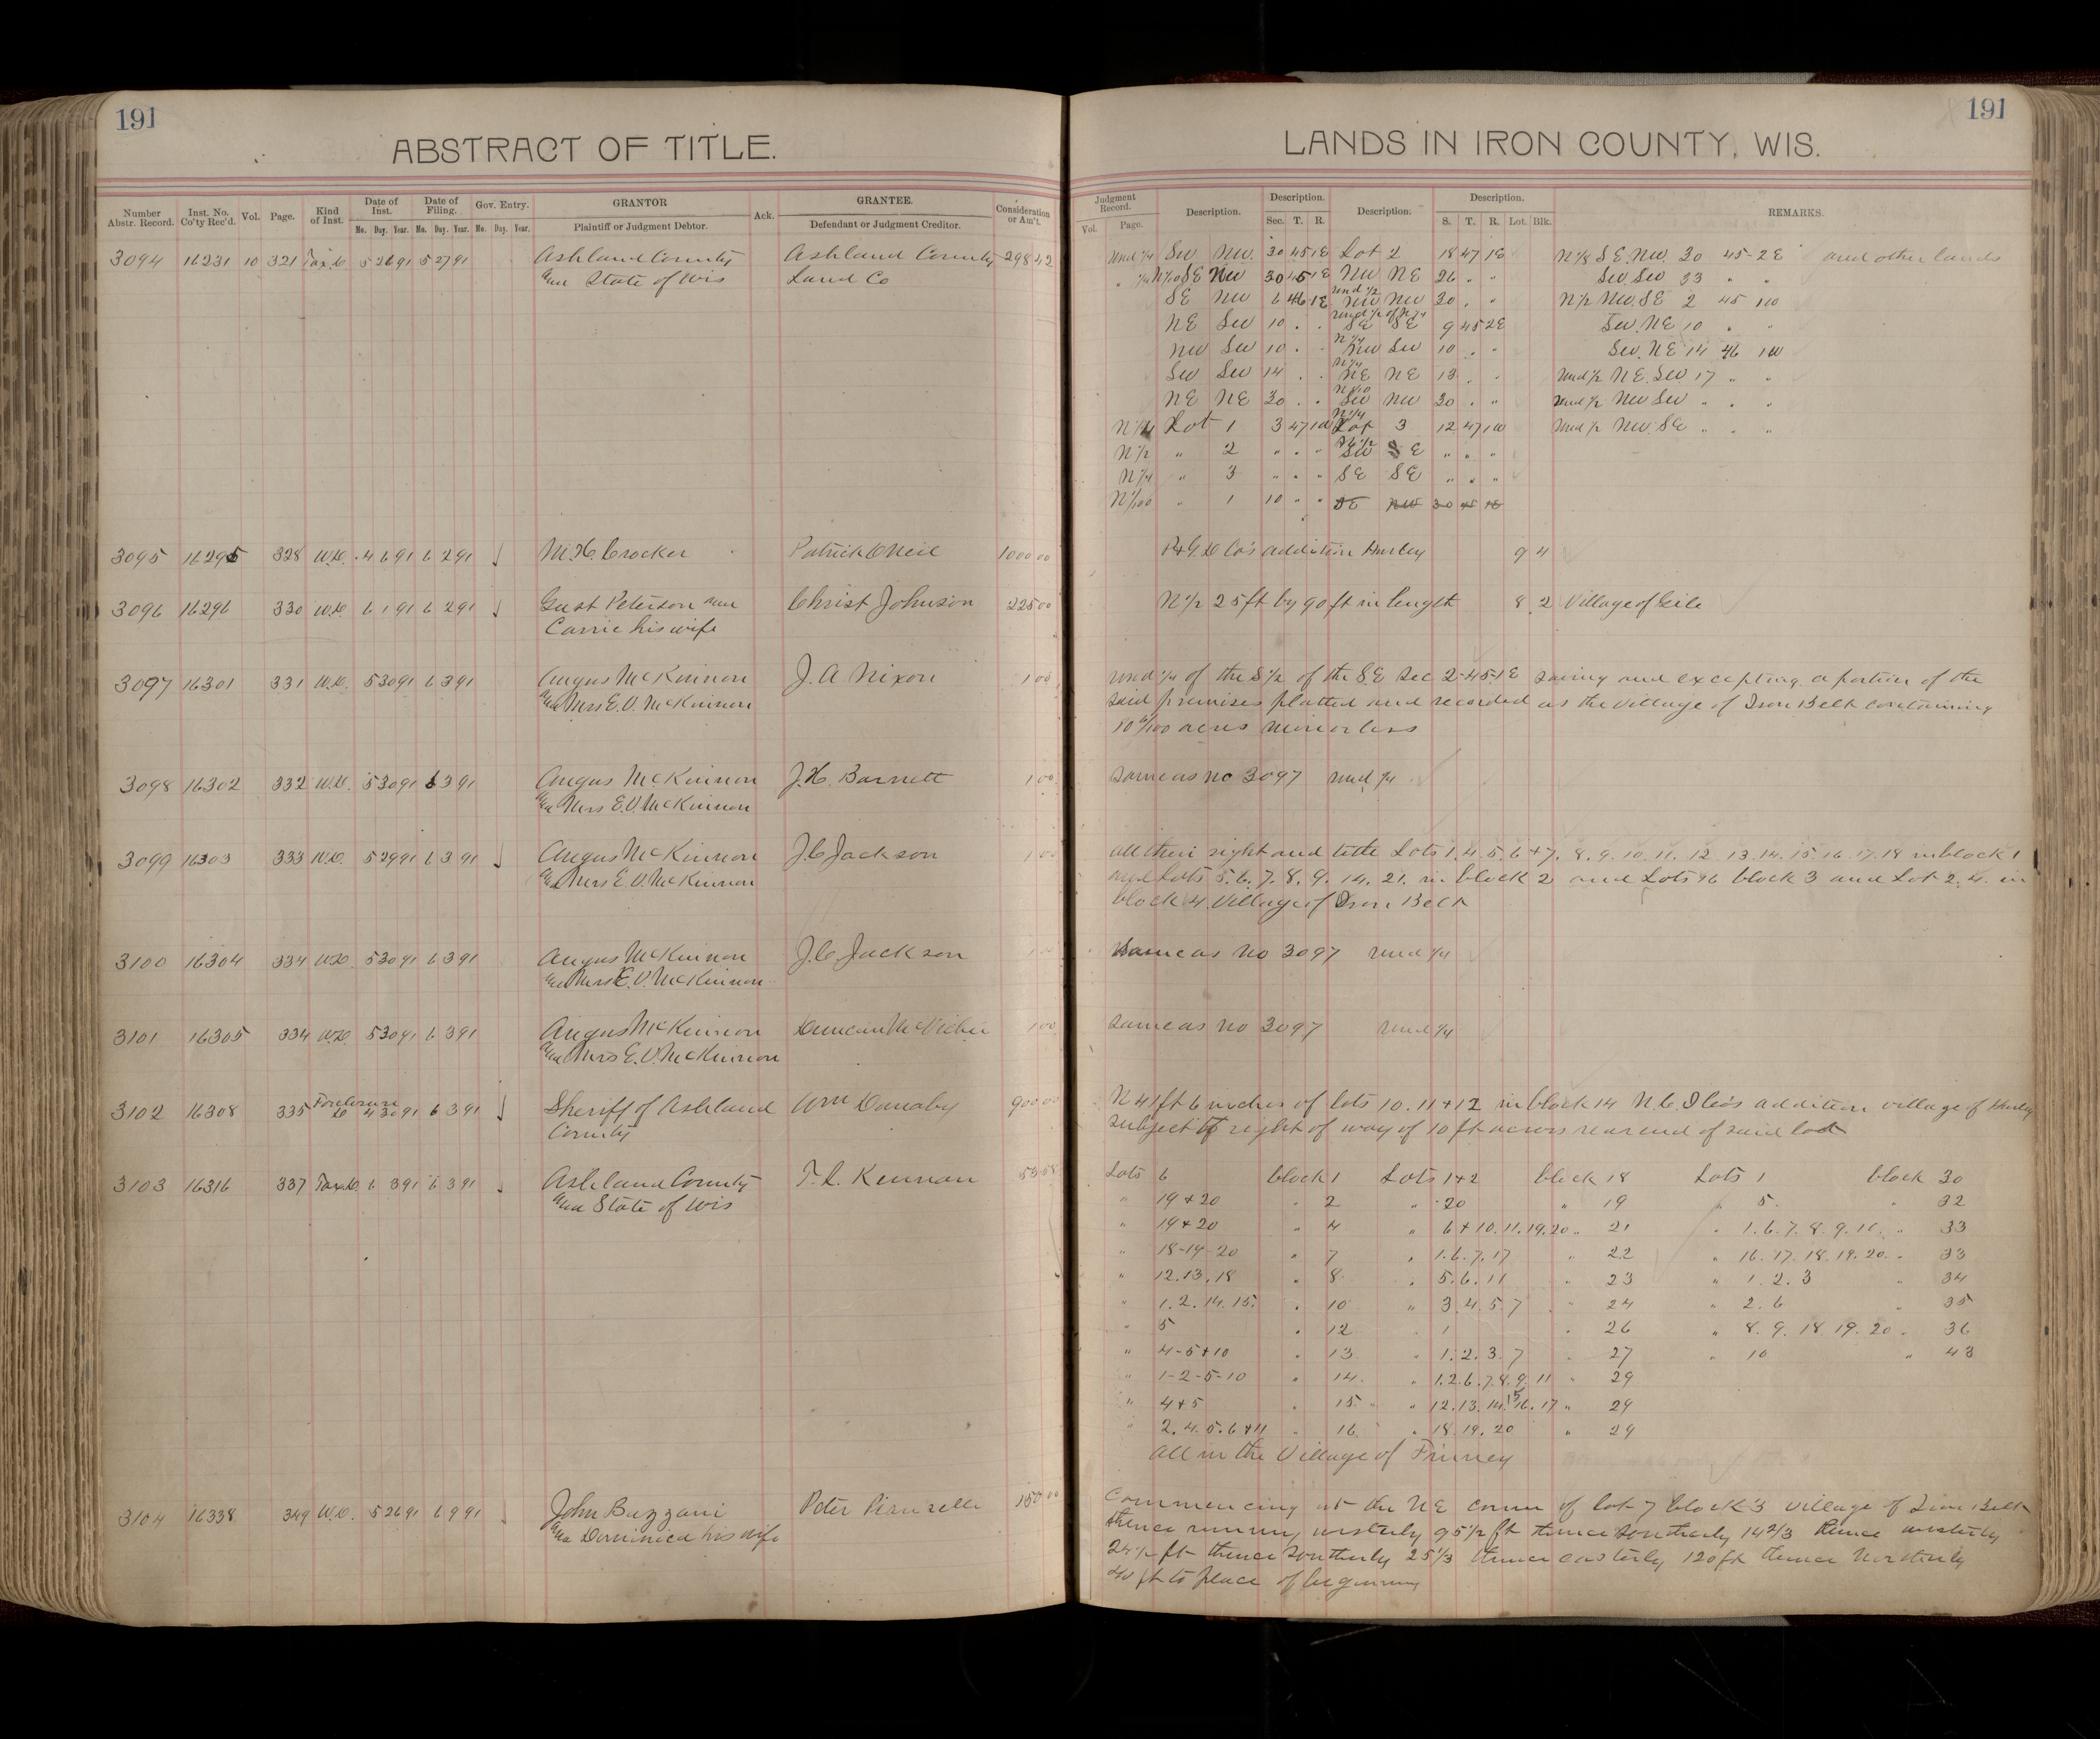 191
ABSTRACT OF TITLE.
Number Abstr. Record. Inst. No. Co'ty Rec'd. Vol. Page. Kind of Inst. Date of Inst. Date of Filing. Gov. Entry. GRANTOR Ack. GRANTEE. Consideration or Am't.
Mo. Day. Year. Mo. Day. Year. Mo. Day. Year. Plaintiff or Judgment Debtor. Defendant or Judgment Creditor.
3094 16231 10 321 Tax D 5 26 91 5 27 91 Ashland County Ashland County 298 42
and State of Wis Land Co
3095 16295 328 W.D. 4 6 91 6 2 91 M.H. Crocker Patrick O'Neil 1000 00
3096 16296 330 W.D. 6 1 91 6 2 91 Gust Peterson and Christ Johnson 225 00
Carrie his wife
3097 16301 331 W.D. 5 30 91 6 3 91 Angus McKinnon J.A Nixon 1 00
and Mrs E.V. McKinnon
3098 16302 332 W.D. 5 30 91 6 3 91 Angus McKinnon J.H. Barnett 1 00
and Mrs E.V. McKinnon
3099 16303 333 W.D. 5 29 91 6 3 91 Angus McKinnon J.C Jackson 1 00
and Mrs E.V. McKinnon
3100 16304 334 W.D. 5 30 91 6 3 91 Angus McKinnon J.C. Jackson
and Mrs E.V. McKinnon
3101 16305 334 W.D. 5 30 91 6 3 91 Angus McKinnon Duncan 1 00
and Mrs E.V. McKinnon
3102 16308 335 Foreclosure D 4 30 91 6 3 91 Sheriff of Ashland Wm Danaby 900 00
County
3103 16316 337 Tax D. 6 3 91 6 3 91 Ashland County T.L. Kennan 53 58
and State of Wis
3104 16338 349 W.D. 5 26 91 6 9 91 John Buzzani Peter 150 00
and Dominica his wife
191
LANDS IN IRON COUNTY, WIS.
Judgment Record. Description. Description. Description. Description. REMARKS.
Vol. Page. Sec. T. R. S. T. R. Lot. Blk.
und 1/4 SW NW. 30 45 1E Lot 2 18 47 1E N 1/8 S E. NW 30 45 2E and other lands
" 1/4 N 1/10 SE NW 30 45 1E NW NE 26 " " SW. SW 33 " "
SE NW 6 46 1E und 1/2 NW NW 30 " " N 1/2 NW. SE 2 45 1W
NE SW 10 " " und 1/2 of N 1/4 SE SE 9 45 2E SW. NE 10 " "
NW SW 10 " " N 1/4 NW SW 10 " " SW. NE 14 46 1W
SW SW 14 " " N 1/4 NE NE 13 " " und 1/2 NE. SW 17 " "
NE NE 30 " " N 1/10 SW NW 30 " " und 1/2 NW SW " " "
N 1/4 Lot 1 3 47 1W N 1/4 Lot 3 12 47 1W und 1/2 NW. SE " " "
N 1/2 " 2 " " " N 1/2 SW SE " " "
N 1/4 " 3 " " " SE SE " " "
N 1/100 " 1 10 " " SE NW 30 45 1E
P & G. D Co's addition Hurley 9 4
N 1/2 25 ft by 90 ft in length 8 2 Village of Gile
und 1/4 of the S 1/2 of the S.E Sec 2-45-1E saving and excepting a portion of the
said premises platted and recorded as the Village of Iron Belt containing
/100 acres more or less
same as no 3097 und 1/4
all their right and title Lots 1. 4. 5. 6 + 7. 8. 9. 10. 11. 12 13. 14. 15. 16. 17. 18 in block 1
and Lots 5. 6. 7. 8. 9. 14. 21. in block 2 and Lots 16 block 3 and Lot 2. 4. in
block 4 Village of Iron Belt
same as No 3097 und 1/4
same as no 3097 und 1/4
N 41 ft 6 inches of lots 10. 11 + 12 in block 14 N.C. I Co's addition village of Hurley
subject to right of way of 10 ft across rear end of said lot
Lots 6 block 1 Lots 1+2 block 18 Lots 1 block 30
" 19 + 20 " 2 " 20 " 19 " 5. " 32
" 19 + 20 " 4 " 6 + 10. 11. 19. 20 " 21 " 1. 6. 7. 8. 9. 10. " 33
" 18-19-20 " 7 " 1. 6. 7. 17 " 22 " 16. 17. 18. 19. 20. " 33
" 12. 13. 18 " 8 " 5. 6. 11 " 23 " 1. 2. 3 " 34
" 1. 2. 14. 15. " 10 " 3. 4. 5. 7 " 24 " 2. 6 " 35
" 5 " 12 " 1 " 26 " 8. 9. 18. 19. 20 " 36
" 4-5+10 " 13 " 1. 2. 3. 7 " 27 " 10 " 43
" 1-2-5-10 " 14. " 1. 2. 6. 7. 8. 9. 11 " 29
" 4+5 " 15. " 12. 13. 14. 15 16. 17 " 29
" 2. 4. 5. 6 + 11 " 16. " 18. 19. 20 " 29
All in the Village of Finney
Commencing at the NE corner of lot 7 block 3 village of Iron Belt
thence running westerly 95 1/2 ft thence southerly 14 2/3 thence westerly
24 1/2 ft thence southerly 25 1/3 thence easterly 120 ft thence Northerly
40 ft to place of beginning